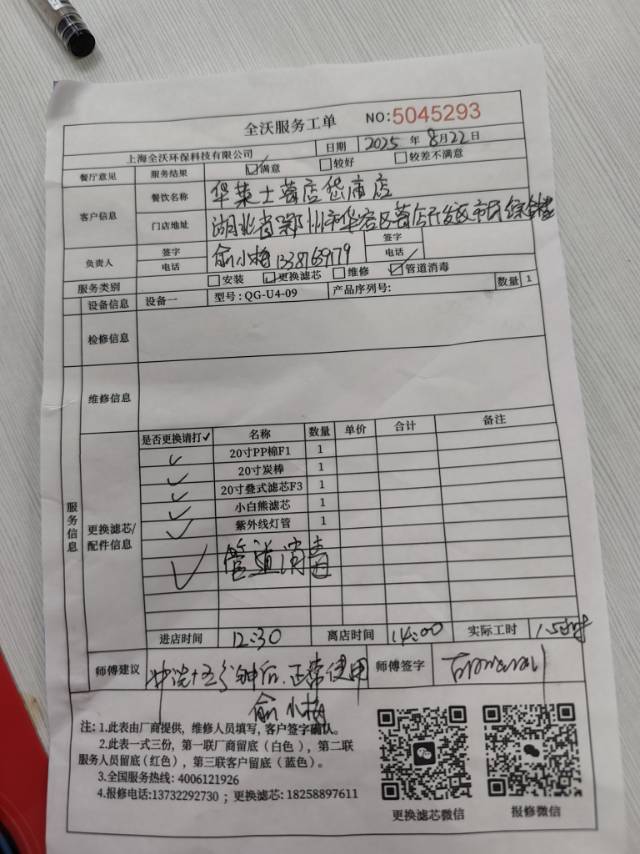 全沃服务工单 NO:5045293
上海全沃环保科技有限公司 日期 2025 年 8月22日
餐厅意见 服务结果 ☑满意 □较好 □较差不满意
客户信息 餐饮名称 华莱士首店岱庙店
门店地址 湖北省鄂州市华容区
负责人 签字 电话 俞小梅 签字 电话
服务类别 □安装 ☑更换滤芯 □维修 ☑管道消毒
设备信息 设备一 型号:QG-U4-09 产品序列号: 数量 1
检修信息
维修信息
服务信息
更换滤芯/配件信息
是否更换请打✓ 名称 数量 单价 合计 备注
✓ 20寸PP棉F1 1
✓ 20寸炭棒 1
✓ 20寸叠式滤芯F3 1
✓ 小白熊滤芯 1
✓ 紫外线灯管 1
✓ 管道消毒
进店时间 12:30 离店时间 14:00 实际工时 1.5
师傅建议 冲洗十五分钟后.正常使用 师傅签字
俞小梅
注: 1.此表由厂商提供, 维修人员填写, 客户签字确认。
2.此表一式三份, 第一联厂商留底(白色), 第二联
服务人员留底(红色), 第三联客户留底(蓝色)。
3.全国服务热线: 4006121926
4.报修电话:13732292730 ; 更换滤芯: 18258897611
更换滤芯微信 报修微信